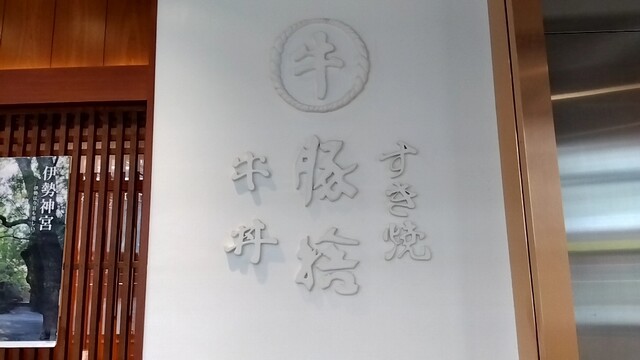 牛
すき焼
豚捨
牛丼
伊勢神宮